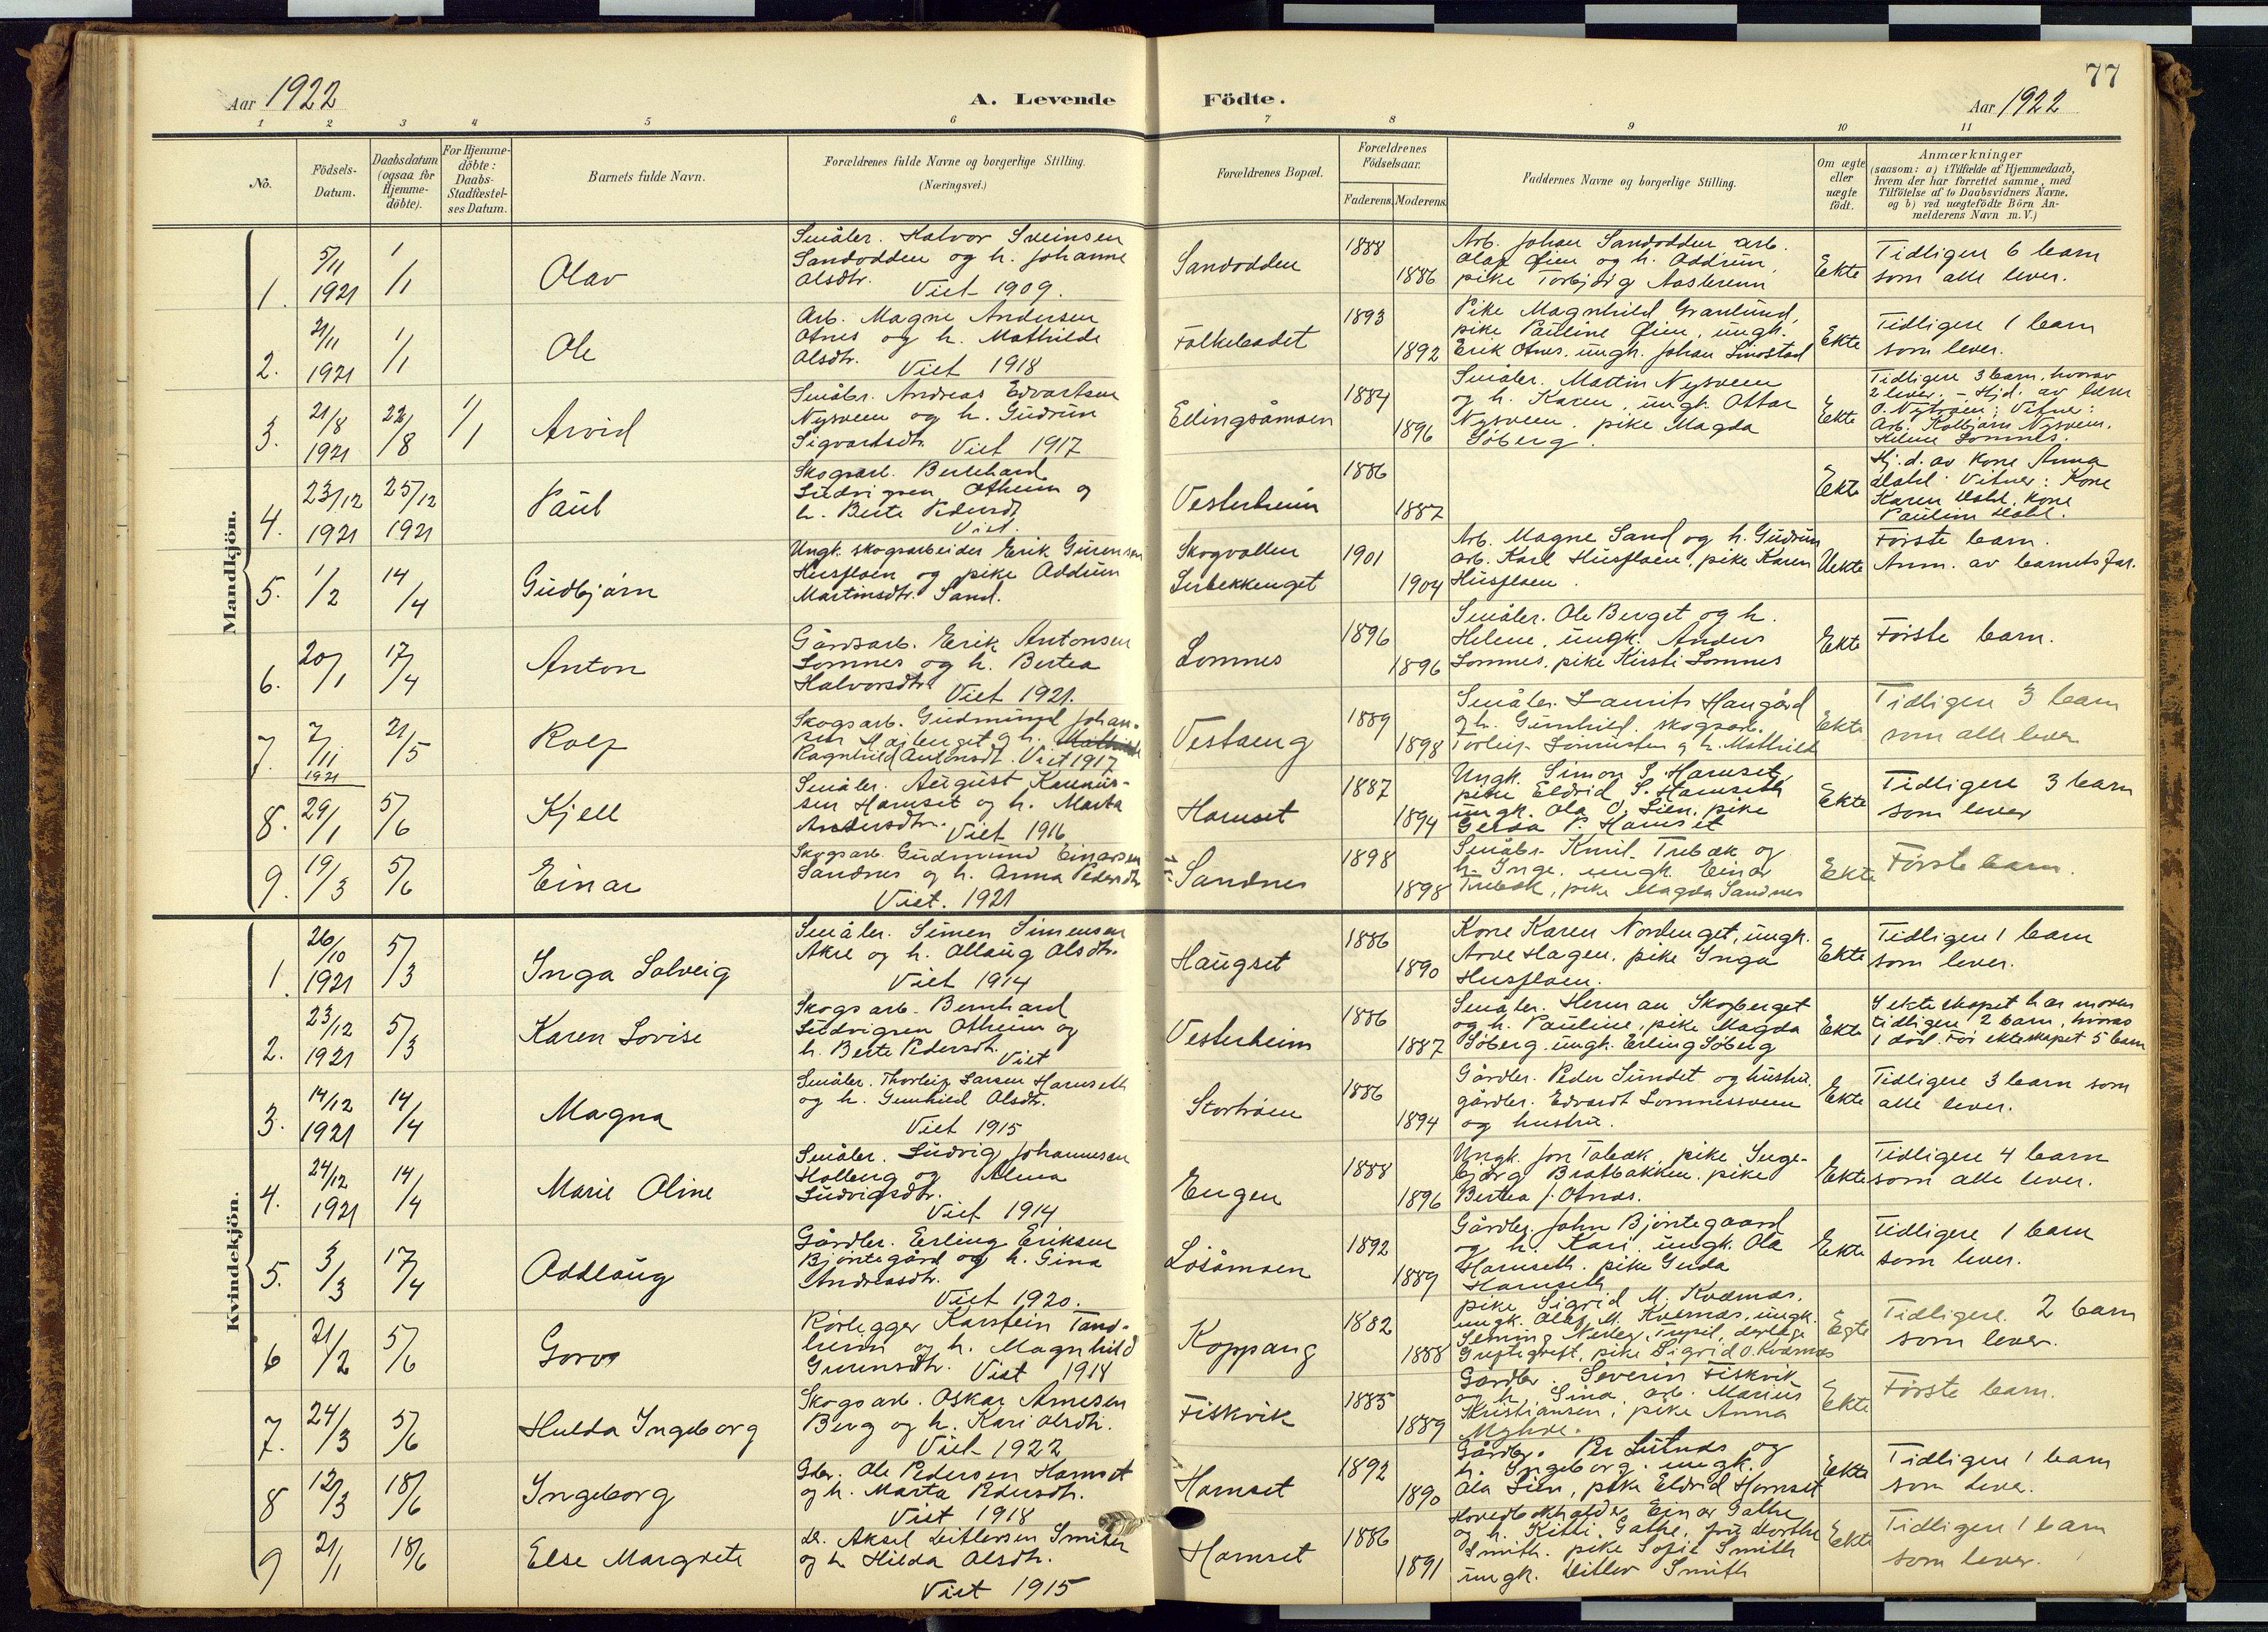 77
Aar 1922
A. Levende Födte.
Aar 1922
1 2 3 4 5 6 7 8 9 10 11
No.
Födsels-
Datum.
Daabsdatum
(ogsaa for
Hjemme-
döbte).
For Hjemme-
döbte:
Daabs-
Stadfæstel-
ses Datum.
Barnets fulde Navn.
Forældrenes fulde Navne og borgerlige Stilling.
(Næringsvei.)
Forældrenes Bopæl.
Forældrenes
Födselsaar.
Faderens. Moderens.
Faddernes Navne og borgerlige Stilling.
Om ægte
eller
uægte
födt.
Anmærkninger
(saasom: a) i Tilfælde af Hjemmedaab,
hvem der har forrettet samme, med
Tilföielse af to Daabsvidners Navne.
og b) ved uægtefödte Börn An-
melderens Navn m. V.)
Mandkjön.
1. 5/11 1921 1/1 Olav
Småbr. Halvor Sveinsen
Sandodden og h. Johanne
Olsdtr. Viet 1909.
Sandodden 1888 1886
Arb. Johan Sandodden arb.
Olaf Øien og h. Oddrun,
pike Torbjörg Aasterenn
Ekte
Tidligere 6 barn
som alle lever.
2. 21/11 1921 1/1 Ole
Arb. Magne Andersen
Otnes og h. Mathilde
Olsdtr. Viet 1918
Folkebadet 1893 1892
Pike Magnhild Granlund,
pike Pauline Øien, ungk.
Erik Otnes. ungk. Johan Smostad
Ekte
Tidligere 1 barn
som lever.
3. 21/8 1921 22/8 1/1 Arvid
Småbr. Andreas Edvartsen
Nysveen og h. Gudrun
Sigvartsdtr. Viet 1917
Evlingsåmoen 1884 1896
Småbr. Martin Nysveen
og h. Karen, ungk. Ottar
Nysveen. pike Magda
Söberg.
Ekte
Tidligere 3 barn, hvorav
2 lever. - Hjd. av
O. Nytröen: Vitner:
Arb. Kolbjörn Nysveen.
Helene Lomnes.
4. 23/12 1921 25/12 1921 Paul
Skogsarb. Bernhard
Ludvigsen Otheim og
h. Berte Pedersdt.
Viet.
Vesterheim 1886 1887
Ekte
Hj. d. av Kone Anna
Dahl Vitner: Kone
Karen Dahl, kone
Pauline Dahl.
5. 1/2 14/4 Gudbjörn
Ungk. skogsarbeider Erik Gurensen
Husfloen og pike Oddrun
Martinsdtr. Sand.
Skogvollen
1901 1904
Arb. Magne Sand og h. Gudrun
arb. Karl Husfloen, pike Karen
Husfloen.
Uekte
Förste barn.
Anm. av barnets far.
6. 20/1 17/4 Anton
Gårdsarb. Erik Antonsen
Lomnes og h. Bertea
Halvorsdtr. Viet 1921.
Lomnes 1896 1896
Småbr. Ole Berget og h.
Helene, ungk. Anders
Lomnes, pike Kirsti Lomnes
Ekte
Förste barn.
7. 2/11 1921 21/5 Rolf
Skogsarb. Gudmund Johan-
sen og h.
Ragnhild Antonsdt. Viet 1917
Vestaeng 1889 1898
Småbr. Laurits Haugård
og h. Gunhild. skogsarb.
Torleif og h. Mathilde
Ekte
Tidligere 3 barn
som alle lever
8. 29/1 5/6 Kjell
Småbr. August Rasmus-
sen Harnset og h. Marta
Andersdtr. Viet 1916
Harnset 1887 1894
Ungk. Simon S. Harnset,
pike Eldrid S. Harnseth
ungk. Ola O. Lien, pike
Gerda P. Harnset
Ekte
Tidligere 3 barn
som lever
9. 19/3 5/6 Einar
Skogsarb. Gudmund Einarsen
Sandnes og h. Anna Pedersdtr.
Viet. 1921
Sandnes 1898 1898
Småbr. Emil Trebæk og
h. Inge. ungk. Einar
Trebæk, pike Magda Sandnes
Ekte
Förste barn.
Kvindekjön.
1. 26/10 1921 5/3 Inga Solveig
Småbr. Simen Simensen
Akre og h. Allaug Olsdtr.
Viet 1914
Haugset 1886 1890
Kone Karen Nordenget, ungk.
Arve Hagen. pike Inga
Husfloen.
Ekte
Tidligere 1 barn
som lever.
2. 23/12 1921 5/3 Karen Lovise
Skogsarb. Bernhard
Ludvigsen Otheim og
h. Berte Pedersdtr.
Viet
Vesterheim 1886 1887
Småbr. Herman Skogberget
og h. Pauline, pike Magda
Söberg. ungk. Erling Söberg
Ekte
I ekteskapet har moren
tidligere 2 barn, hvorav
1 död. För ekteskapet 5 barn
3. 14/12 1921 14/4 Magna
Småbr. Thorleif Larsen Harnseth
og h. Gunhild Olsdtr.
Viet 1915
Stortröen 1886 1894
Gårdbr. Peder Sundet og hustru.
gårdbr. Edvardt Lomnessveen
og hustru.
Ekte
Tidligere 3 barn som
alle lever.
4. 24/12 1921 14/4 Marie Oline
Småbr. Ludvig Johannesen
Holberg og Alma
Ludvigsdtr.
Viet 1914
Engen 1888 1896
Ungk. Jon Tobæk, pike Inge-
björg Bratbakken. pike
Bertea J. Otnes.
Ekte
Tidligere 4 barn
som alle lever.
5. 3/3 17/4 Oddlaug
Gårdbr. Erling Eriksen
Bjöntegård og h. Gina
Andreasdtr.
Viet 1920.
Lösåmoen 1892 1889
Gårdbr. John Bjöntegaard
og h. Kari. ungk. Ola
Harnseth. pike Gerda
Harnseth
Ekte
Tidligere 1 barn
som lever.
6 21/2 5/6 Goro
Rörlegger Karstein Tand-
berg og h. Magnhild
Gurensdtr. Viet 1918
Koppang 1882 1888
pike Sigrid M. Kværnæs.
ungk. Olaf M. Kvernæs, ungk.
pike Sigrid O. Kværnæs
Egte
Tidligere. 2 barn
som lever.
7. 24/3 5/6 Hulda Ingeborg
Skogsarb. Oskar Arnesen
Berg og h. Kari Olsdtr.
Viet 1922
Fiskvik 1885 1889
Gårdbr. Severin Fiskvik
og h. Sina, arb. Marius
Kristiansen, pike Anna
Myhre.
Ekte
Förste barn.
8 12/3 18/6 Ingeborg
Gbr. Ole Pedersen Harnset
og h. Marta Pedersdtr.
Viet 1918
Harnset 1892 1890
Gårdbr. Per Lutnæs og
h. Ingeborg. ungk.
Ola Lien, pike Eldrid Harnset
Ekte
Tidligere 1 barn
som lever.
9 21/1 18/6 Else Margrete
Dr. Aksel Ditlevsen Smith
og h. Hilda Olsdtr.
Viet 1915
Harnset 1886 1891
Hovedbokholder Einar Gathe
og h. Kitti. Gathe, fru Dorthe
Smith. pike Sofie Smith
ungk. Ditlev Smith
Ekte
Tidligere 1 barn
som lever.